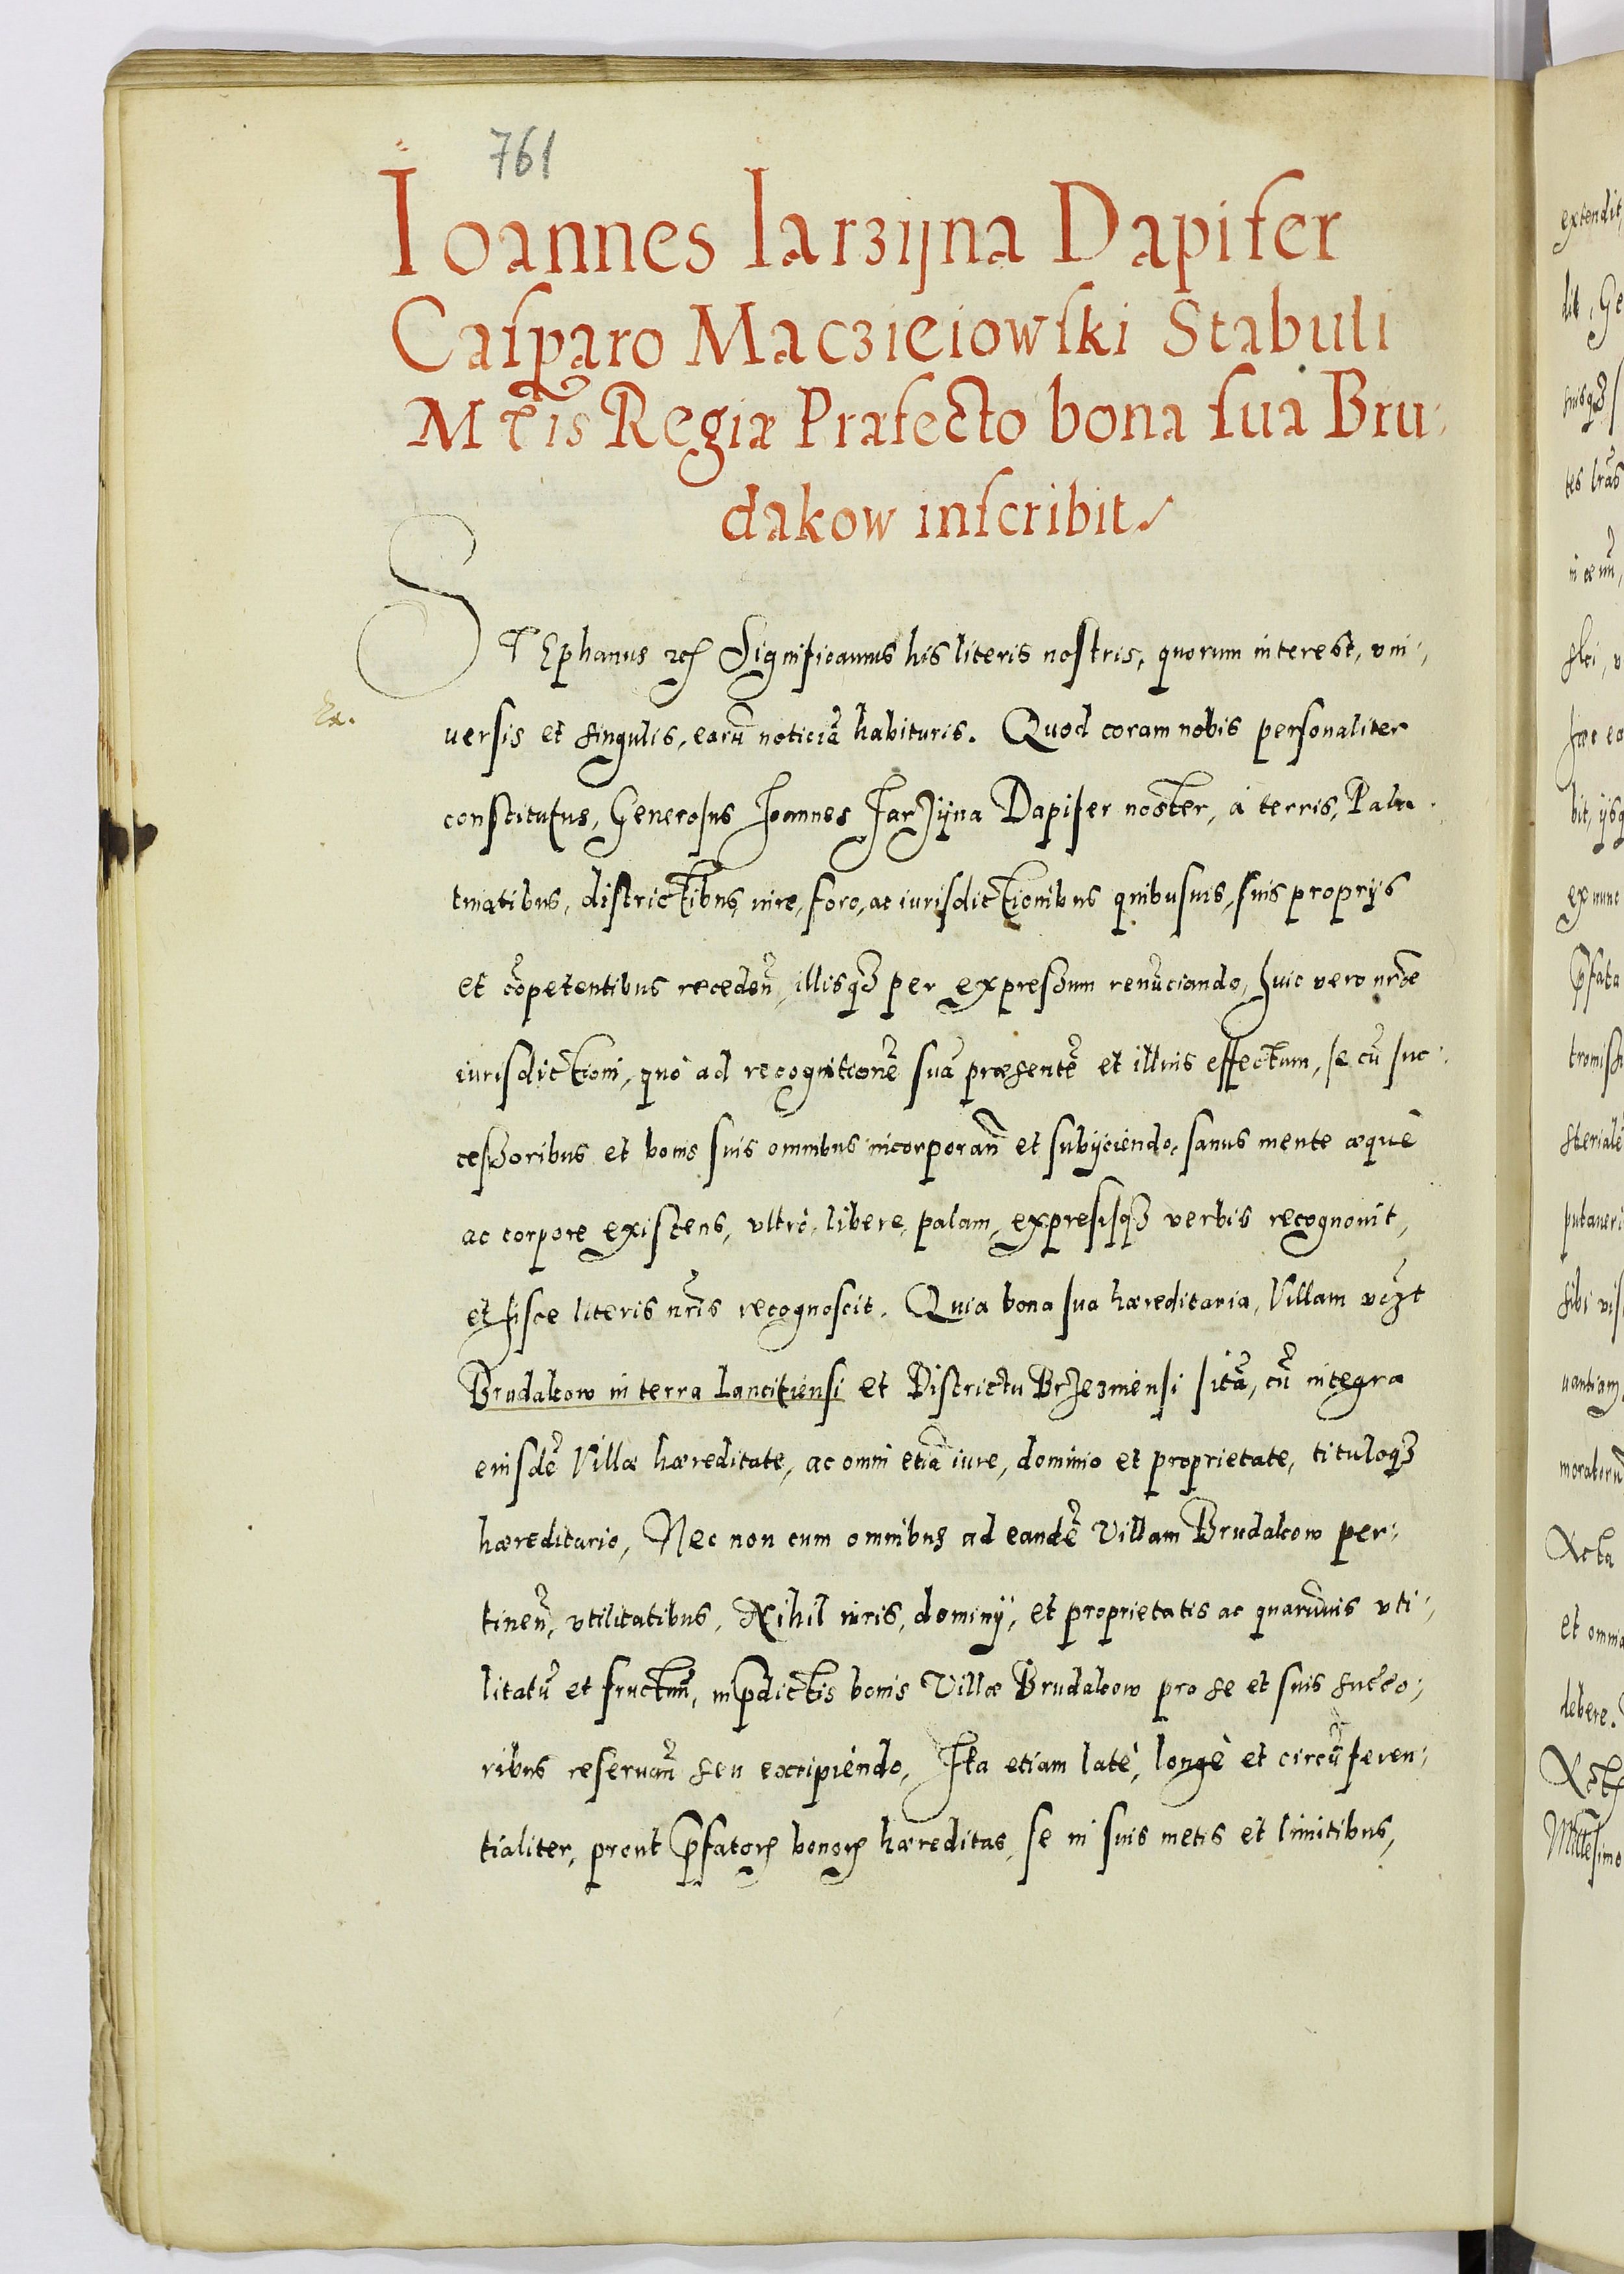 761
Ioannes Iarzijna Dapifer
Casparo Maczieiowski Stabuli
Mt̃is Regiæ Præfecto bona sua Bru:
dakow inscribit
STEphanus etc Significamus his literis nostris, quorum interest, vni:
Ex.
uersis et singulis, earũ noticiã habituris. Quod coram nobis personaliter
constitutus, Generosus Ioannes Jarzijna Dapifer noster, à terris, Pala:
tinatibus, districtibus, iure, foro, ac iurisdictionibus quibusuis, suis proprijs
et cõpetentibus recedeñ, illisq3 per expressum renũciando, huic vero nr̃æ
iurisdictioni, quò ad recognitionẽ suã præsentẽ et illius effectum, se cũ suc:
cessoribus et bonis suis omnibus incorporañ et subijciendo, sanus mente æquè
ac corpore existens, vltrò, libere, palam, expresisq3 verbis recognouit,
et hisce literis nr̃is recognoscit. Quia bona sua hæreditaria, Villam vc3t
Brudakow in terra Lancitiensi et Districtu Brzezinensi sitã, cũ integra
eiusdẽ Villæ hæreditate, ac omni etiã iure, dominio et proprietate, tituloq3
hæreditario, Nec non cum omnibus ad eandẽ Villam Brudakow per:
tineñ, vtilitatibus, Nihil iuris, dominij, et proprietatis ac quarũuis vti:
litatũ et fructuũ, in p̃dictis bonis Villæ Brudakow pro se et suis succo:
ribus reseruañ seu excipiendo, Ita etiam latè, longè et circũferen:
tialiter, prout p̃fatorꝝ bonorꝝ hæreditas, se in suis metis et limitibus,
extendit,